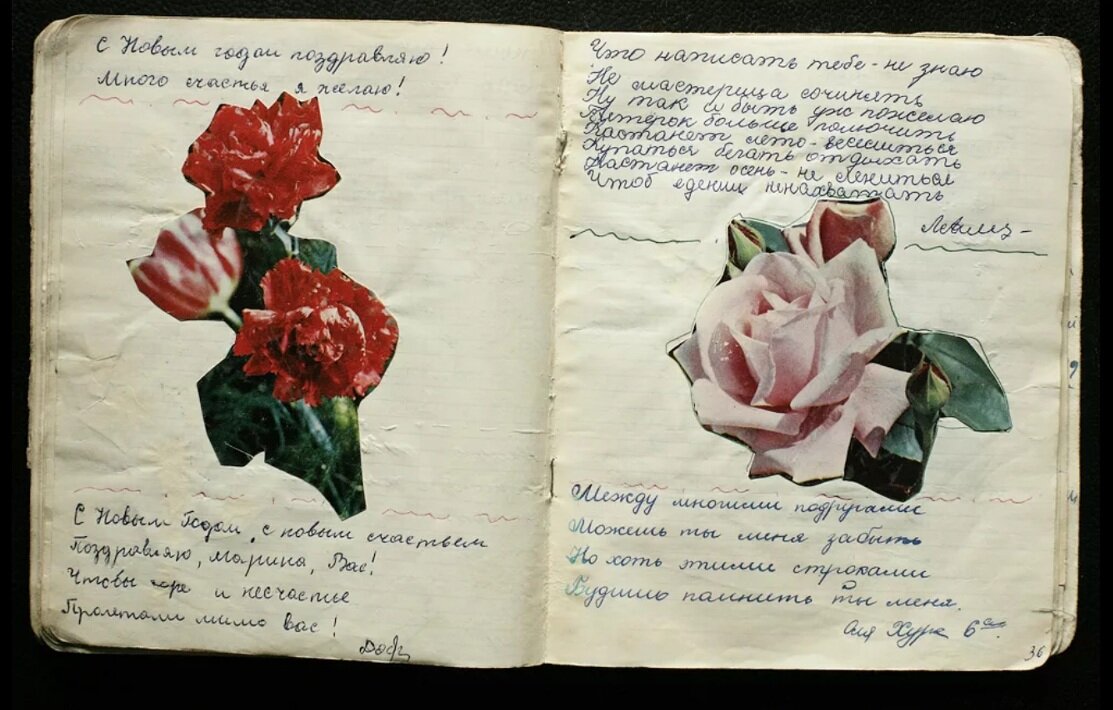 С Новым годом поздравляю!
Много счастья я желаю!
С Новым Годом, с новым счастьем
Поздравляю, Марина, Вас!
Чтобы горе и несчастье
Пролетали мимо вас!
Что написать тебе - не знаю
Не мастерица сочинять
Ну так и быть уж пожелаю
Пятерок больше получить
Настанет лето - веселиться
Купаться бегать отдыхать
Настанет осень - не лениться
Чтоб единиц не нахватать
Между многими подругами
Можешь ты меня забыть
Но хоть этими строками
Будишь помнить ты меня.
6
36